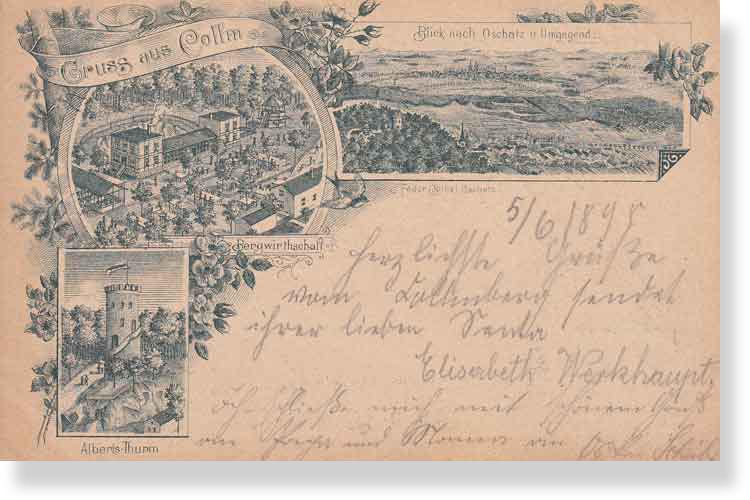 Gruss aus Collm
Blick nach Oschatz u. Umgegend.
Bergwirthschaft
Alberts-Thurm
5/6 1898
Herzlichste Grüße
vom Collmberg sendet
ihrer lieben Senta
Eliserbeth Werkhaupt.
schließe mich mit schönem Gruß
an und Mama an